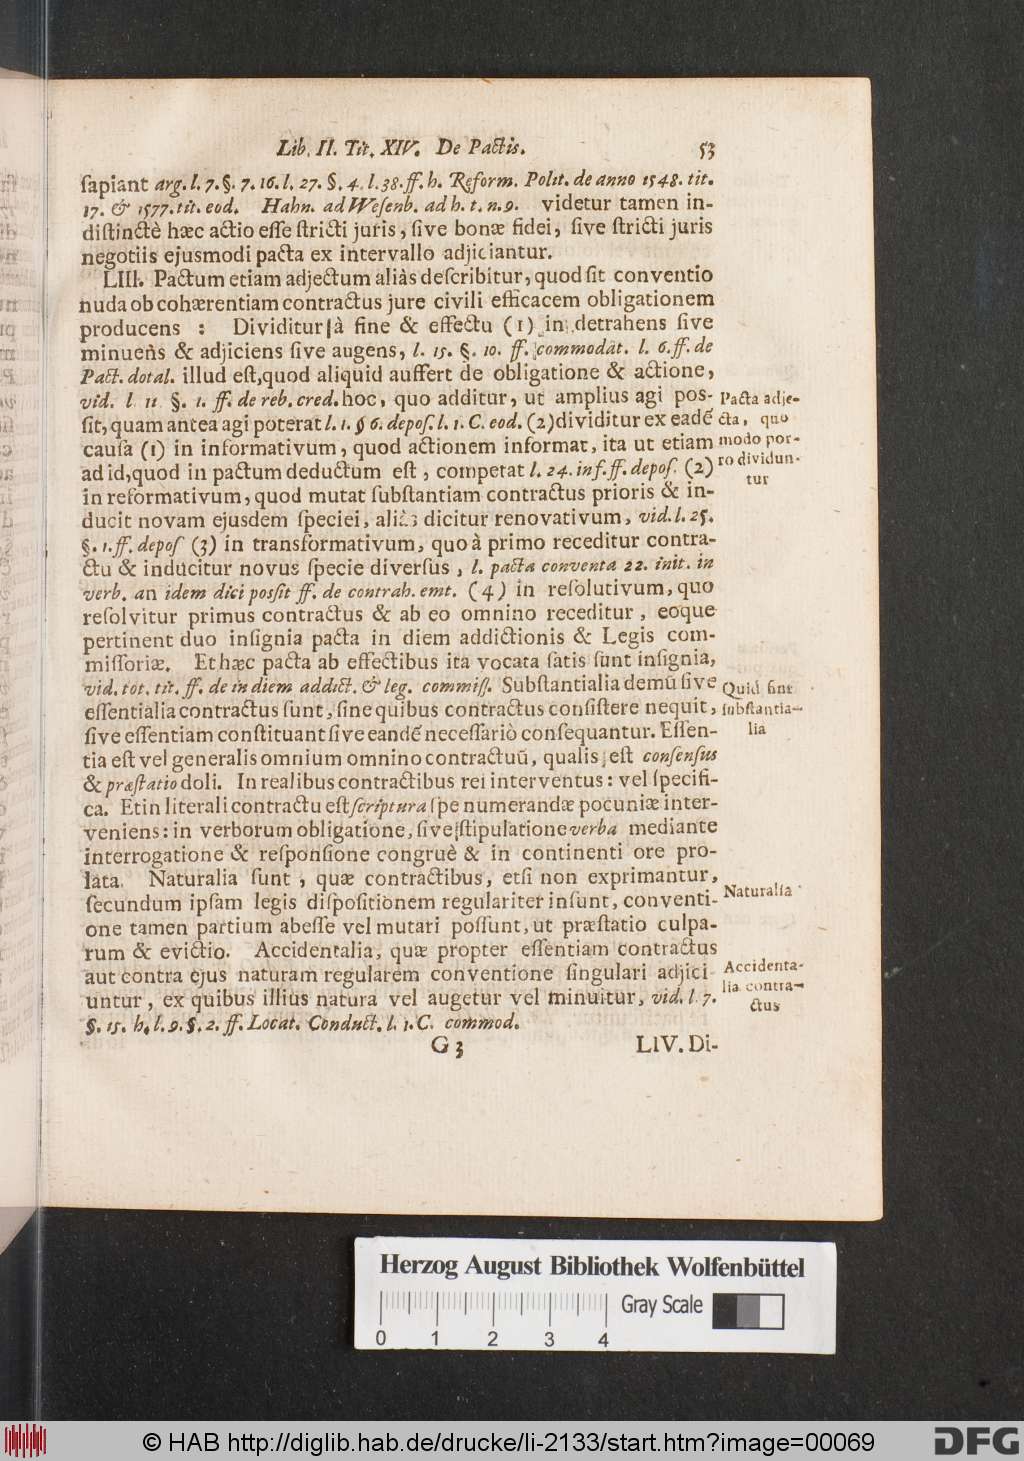 Lib. II. Tit. XIV. De Pactis. 53
ſapiant arg. l. 7. §. 7. 16. l. 27. §. 4. l. 38. ff. h. Reform. Polit. de anno 1548. tit.
17. & 1577. tit. eod. Hahn. ad Weſenb. ad h. t. n. 9. videtur tamen in-
diſtinctè hæc actio eſſe ſtricti juris, ſive bonæ fidei, ſive ſtricti juris
negotiis ejusmodi pacta ex intervallo adjiciantur.
LIII. Pactum etiam adjectum aliàs deſcribitur, quod ſit conventio
nuda ob cohærentiam contractus jure civili efficacem obligationem
producens : Dividitur à fine & effectu (1) in detrahens ſive
minuens & adjiciens ſive augens, l. 15. §. 10. ff. commodat. l. 6. ff. de
Pact. dotal. illud eſt, quod aliquid auffert de obligatione & actione,
vid. l 11 §. 1. ff. de reb. cred. hoc, quo additur, ut amplius agi pos-
ſit, quam antea agi poterat l. 1. § 6. depoſ. l. 1. C. eod. (2) dividitur ex eadē
cauſa (1) in informativum, quod actionem informat, ita ut etiam
ad id, quod in pactum deductum eſt, competat l. 24. inf. ff. depoſ. (2)
in reformativum, quod mutat ſubſtantiam contractus prioris & in-
ducit novam ejusdem ſpeciei, aliàs dicitur renovativum, vid. l. 25.
§. 1. ff. depoſ (3) in transformativum, quo à primo receditur contra-
ctu & inducitur novus ſpecie diverſus, l. pacta conventa 22. init. in
verb. an idem dici posſit ff. de contrah. emt. (4) in reſolutivum, quo
reſolvitur primus contractus & ab eo omnino receditur, eoque
pertinent duo inſignia pacta in diem addictionis & Legis com-
miſſoriæ. Et hæc pacta ab effectibus ita vocata ſatis ſunt inſignia,
vid. tot. tit. ff. de in diem addict. & leg. commiſſ. Subſtantialia demū ſive
eſſentialia contractus ſunt, ſine quibus contractus conſiſtere nequit,
ſive eſſentiam conſtituant ſive eandē neceſſariò conſequantur. Eſſen-
tia eſt vel generalis omnium omnino contractuū, qualis eſt conſenſus
& præſtatio doli. In realibus contractibus rei interventus: vel ſpecifi-
ca. Et in literali contractu eſt ſcriptura ſpe numerandæ pocuniæ inter-
veniens: in verborum obligatione, ſive ſtipulatione verba mediante
interrogatione & reſponſione congruè & in continenti ore pro-
lata. Naturalia ſunt, quæ contractibus, etſi non exprimantur,
ſecundum ipſam legis diſpoſitionem regulariter inſunt, conventi-
one tamen partium abeſſe vel mutari poſſunt, ut præſtatio culpa-
rum & evictio. Accidentalia, quæ propter eſſentiam contractus
aut contra ejus naturam regularem conventione ſingulari adjici-
untur, ex quibus illius natura vel augetur vel minuitur, vid. l 7.
§. 15. h. l. 9. §. 2. ff. Locat. Conduct. l. 1. C. commod.
G 3 LIV. Di-
Pacta adje-
cta, quo
modo por-
ro dividun-
tur
Quid ſint
ſubſtantia-
lia
Naturalia
Accidenta-
lia contra-
ctus
Herzog August Bibliothek Wolfenbüttel
Gray Scale
0 1 2 3 4
© HAB http://diglib.hab.de/drucke/li-2133/start.htm?image=00069
DFG